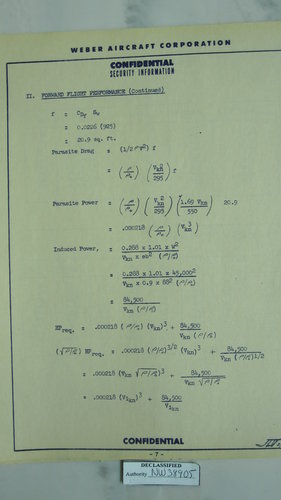 WEBER AIRCRAFT CORPORATION
CONFIDENTIAL
SECURITY INFORMATION
II. FORWARD FLIGHT PERFORMANCE (Continued)
f = C_Df S_w
= 0.0226 (925)
= 20.9 sq. ft.
Parasite Drag = (1/2 ρV²) f
= (ρ/ρ₀) (V_kn²/295) f
Parasite Power = (ρ/ρ₀) (V_kn²/295) (1.69 V_kn/550) 20.9
= .000218 (ρ/ρ₀) (V_kn³)
Induced Power, = 0.288 x 1.01 x W² / V_kn x eb² (ρ/ρ₀)
= 0.288 x 1.01 x 45,000² / V_kn x 0.9 x 88² (ρ/ρ₀)
= 84,500 / V_kn (ρ/ρ₀)
HP req. = .000218 (ρ/ρ₀) (V_kn)³ + 84,500 / V_kn (ρ/ρ₀)
(√ρ/ρ₀) HP req. = .000218 (ρ/ρ₀)^3/2 (V_kn)³ + 84,500 / V_kn (ρ/ρ₀)^1/2
= .000218 (V_kn √ρ/ρ₀)³ + 84,500 / V_kn √ρ/ρ₀
= .000218 (V_ikn)³ + 84,500 / V_ikn
CONFIDENTIAL
- 7 -
DECLASSIFIED
Authority NW 38905